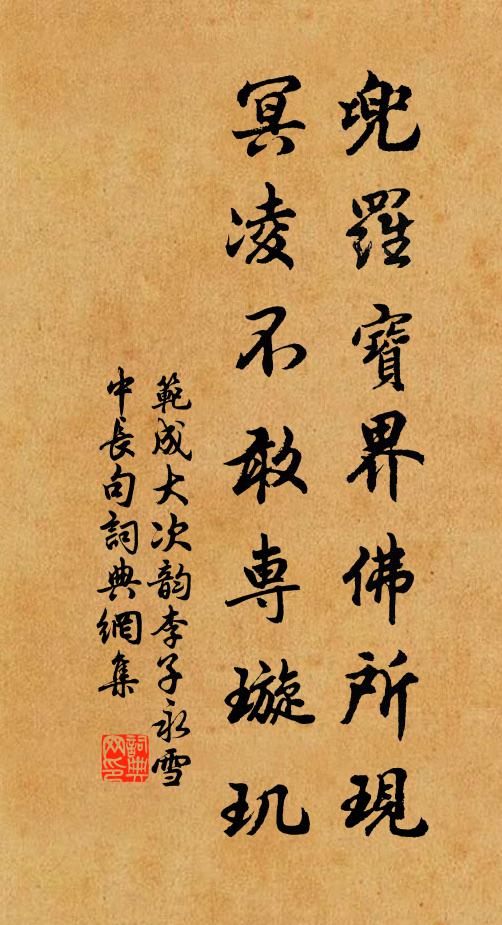 兜羅寶界佛所現
冥凌不敢専璇玑
範成大次韵李子永雪
中長句詞典網集
詞典
网印